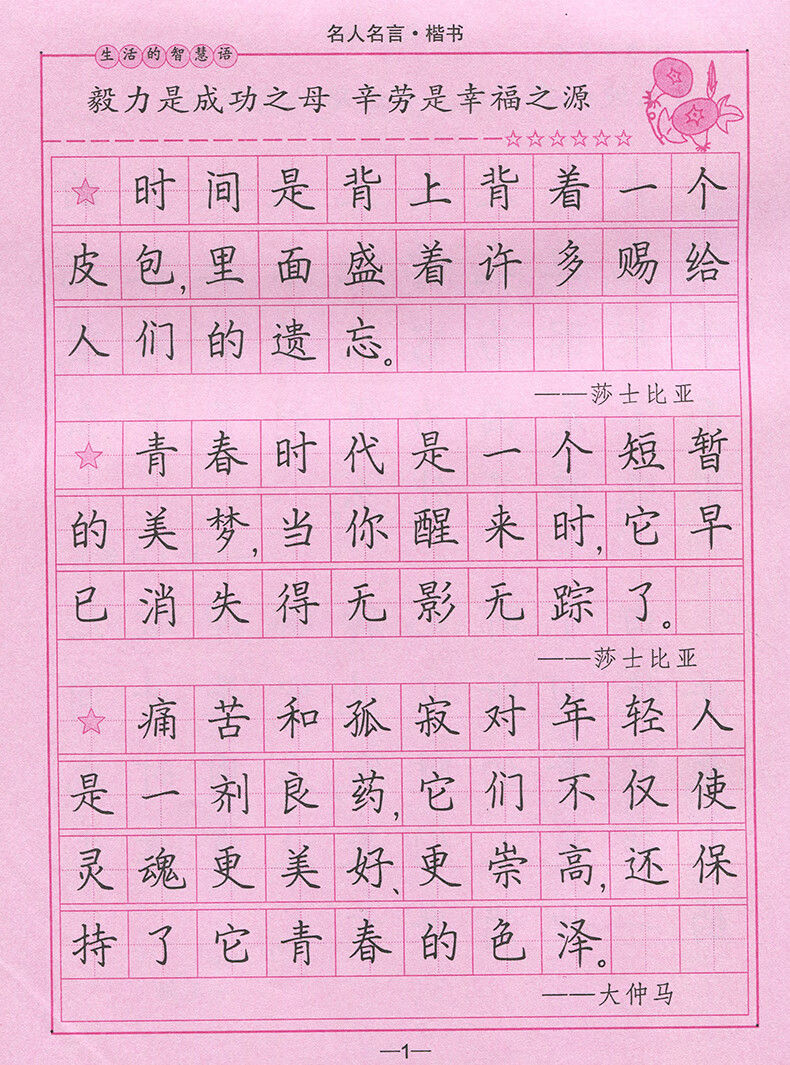 名人名言·楷书
生活的智慧语
毅力是成功之母 辛劳是幸福之源
时间是背上背着一个
皮包,里面盛着许多赐给
人们的遗忘。
——莎士比亚
青春时代是一个短暂
的美梦,当你醒来时,它早
已消失得无影无踪了。
——莎士比亚
痛苦和孤寂对年轻人
是一剂良药,它们不仅使
灵魂更美好、更崇高,还保
持了它青春的色泽。
——大仲马
—1—